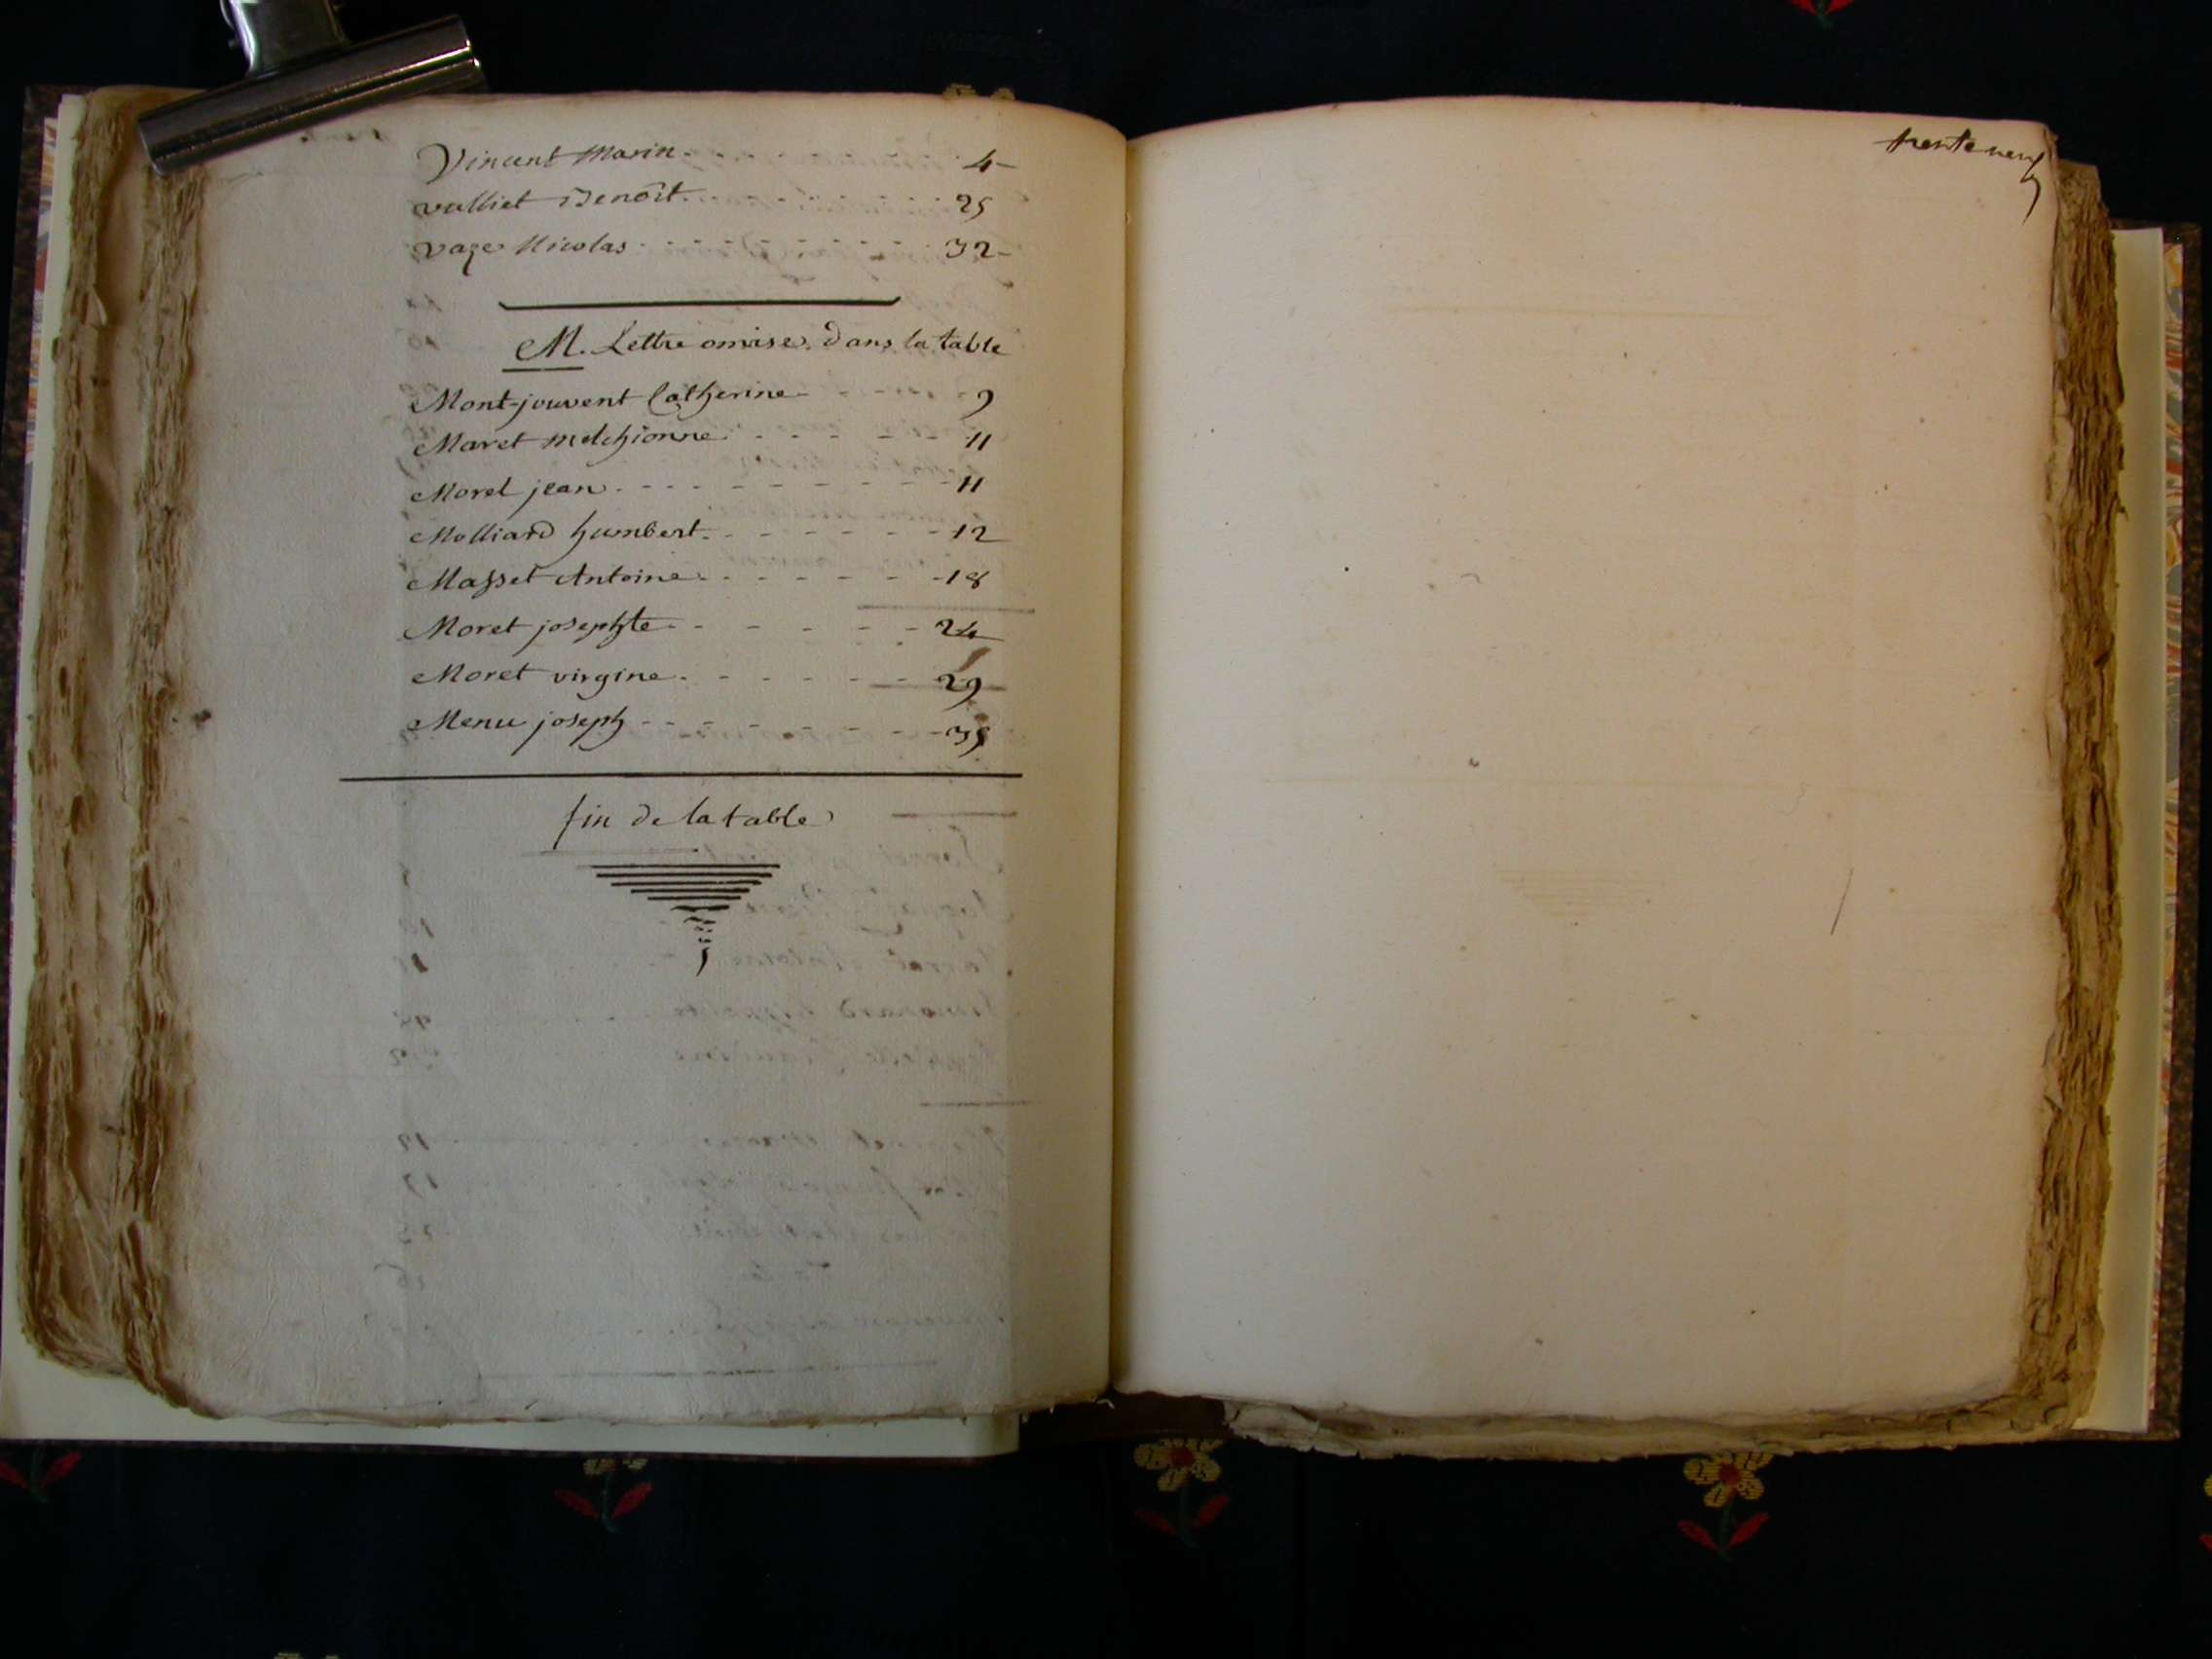 Vincent Marin 4
vulliet Benoît 25
vaze Nicolas 32
M. Lettre omise dans la table
Mont-jouvent Catherine 9
Maret melchionne 11
Morel jean 11
Molliard humbert 12
Masset Antoine 18
Moret josephte 24
Moret virgine 29
Menu joseph 35
fin de la table
trente neuf